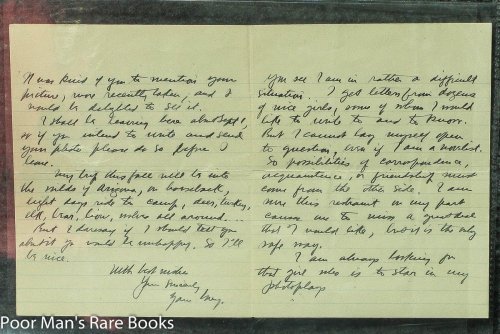 It was kind of you to mention your
picture, more recently taken, and I
would be delighted to see it.
I shall be leaving here about Sept 1,
so if you intend to write and send
your photo please do so before I
leave.
My trip this fall will be into
the wilds of Arizona, on horseback,
eight days ride to camp, deer, turkey,
elk, bear, lion, wolves all around...
But I daresay if I should tell you
about it you would be unhappy. So I'll
be nice.
With best wishes
Yours sincerely
Zane Grey.
You see I am in rather a difficult
situation. I get letters from dozens
of nice girls, some of whom I would
like to write to and to know.
But I cannot lay myself open
to question, even if I am a novelist.
So possibilities of correspondence,
acquaintance, or friendship must
come from the other side. I am
sure this restraint on my part
causes me to miss a great deal
that I would like, but it is the only
safe way.
I am always looking for
that girl who is to star in my
photoplays
Poor Man's Rare Books